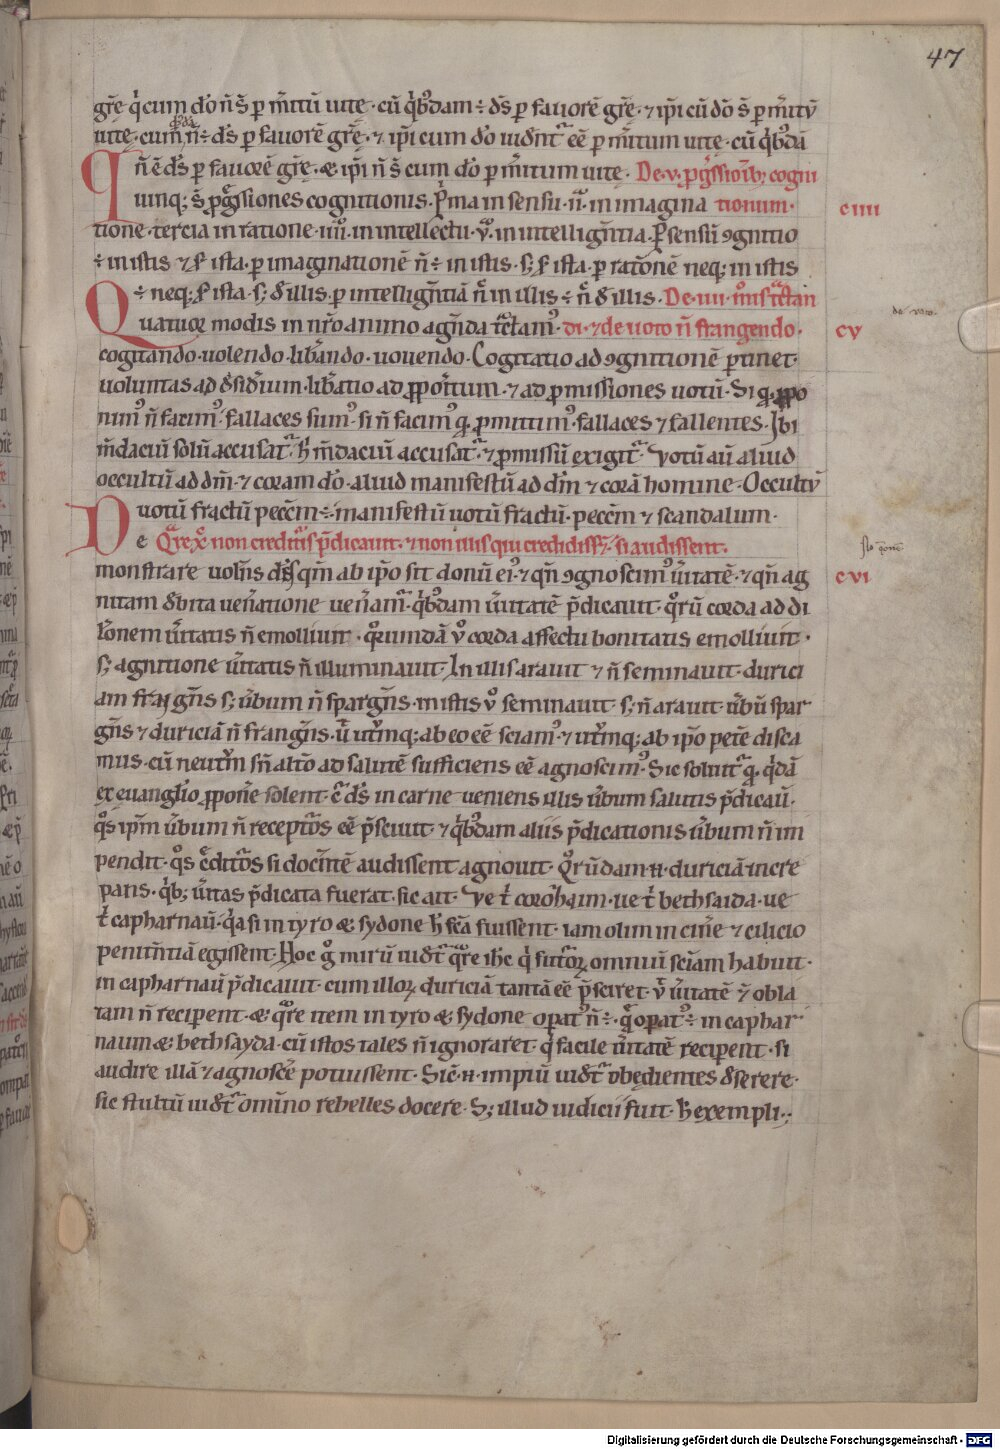 47
gr̄e q̇ cum dō n̄ s̄ p̲ m̄itū uite · cū q̇bꝰdam ÷ d̄s p̲ fauorē gr̄e · ⁊ ip̄i cū dō s̄ p̲ m̄itū
uite · cum q̇bꝰdā n̄ ÷ d̄s p̲ fauorē gr̄e · ⁊ ip̄i cum dō uid̄nt᷑ eē p̲ m̄itum uite · cū q̇bꝰdā
n̄ ē d̄s p̲ fauorē gr̄e · & ip̄i n̄ s̄ cum dō p̲ m̄itum uite · De · v · ꝓg̊ssioīb; cogni
Quinq; s̄ ꝓg̊ssiones cognitionis · P̄ma in sensu · ii̊ · in imagina tionum · ciiii
tione · tercia in ratione · iiii̊ · in intellectu · v̊ · in intellign̄tia · P̲ sensū ꝯgnitio
÷ in istis ⁊ ex ista · p̲ imaginationē n̄ ÷ in istis · s; ex ista · p̲ ratōnē neq; in istis
÷ neq; ex ista · s; d̄ illis · p̲ intellign̄tiā n̄ in illis ÷ n̄ d̄ illis · De · iiii · m̊is t̄ctan
Quatuor modis in nr̄o animo agn̄da t̄ctamꝰ · di · ⁊ de uoto n̄ frangendo · cv
de voto
cogitando · uolendo · libr̄ando · uouendo · Cogitatio ad ꝯgnitionē p̲tinet ·
uoluntas ad d̄sid̄ium · libr̄atio ad ꝓpo᷑itum · ⁊ ad p̲missiones uotū · Si q̨ ꝓpo
nimꝰ n̄ facimꝰ · fallaces sumꝰ · si n̄ facimꝰ q̨ p̲mittimꝰ · fallaces ⁊ fallentes · Ibi
m̄daciū solū accusat᷑ · h̄ m̄daciū accusat᷑ · ⁊ p̲missū exigit᷑ · Votū aū aliud
occultū ad dm̄ · ⁊ coram dō · aliud manifestū ad dm̄ ⁊ corā homine · Occultū
uotū fractū pecc̄m ÷ · manifestū uotū fractū · pecc̄m ⁊ scandalum ·
De Q̄re xp̄c non creditur̄is p̄dicauit · ⁊ non illis qui credidissn̄t · si audissent ·
sb̄ q̄one
monstrare uolens d̄s q̄m ab ip̄o sit donū eiꝰ · ⁊ q̄n ꝯgnoscimꝰ ūitatē · ⁊ q̄n ag cvi
nitam d̄bita uen̄atione uen̄am᷑ · q̇bꝰdam ūitatē p̄dicauit · q̊rū corda ad di
lc̄onem ūitatis n̄ emolliuit · q̊rundā v̊ corda affectu bonitatis emolliuit ·
s; agnitione ūitatis n̄ illuminauit · In illis arauit ⁊ n̄ seminauit · durici
am frangn̄s s; ūbum n̄ spargn̄s · in istis v̊ seminauit · s; n̄ arauit · ūbū spar
gn̄s ⁊ duriciā n̄ frangn̄s · ut̄ ut̄ūq; ab eo eē sciamꝰ · ⁊ ut̄ūq; ab ip̄o pet̄e disca
mus · cū neut̄m sn̄ alt̄o ad salutē sufficiens eē agnoscimꝰ · Sic soluit᷑ q̨ q̇dā
ex euangl̄io ꝓpon̄e solent · c̄ d̄s in carne ueniens illis ūbum salutis p̄dicau̅ ·
q̊s ip̄m ūbum n̄ recept̊os eē p̄sciuit · ⁊ q̇bꝰdam aliis p̄dicationis ūbum n̄ im
pendit · q̊s c̄dit̊os si docn̄tē audissent agnouit · Q̊rūdam ·n· duriciā incre
pans · q̇b; ūitas p̄dicata fuerat · sic ait · Ve t̄ corozaim · ue t̄ bethsaida · ue
t̄ capharnaū · q̇a si in tyro & sydone h̄ fc̄a fuissent · iam olim in cin̄e ⁊ cilicio
penitn̄tiā egissent · Hoc g̊ mirū uid̄t᷑ q̊re ih̄c q̇ futuroꝝ omniū scīam habuit ·
in capharnaū p̄dicauit · cum illoꝝ duriciā tantā eē p̄sciret · ut̄ ūitatē s̄ obla
tam n̄ recip̲ent · & q̊re item in tyro & sydone op̲atꝰ n̄ ÷ · q̊d op̲atꝰ ÷ in caphar
naum & bethsayda · cū istos tales n̄ ignoraret · q̇ facile ūitatē recip̲ent · si
audire illā ⁊ agnosc̄e potuissent · Sic̄ ·n· impiū uid̄t᷑ obedientes d̄serere ·
sic stultū uid̄t᷑ omīno rebelles docere · S; illud iudicii fuit · h̄ exempli ·
Digitalisierung gefördert durch die Deutsche Forschungsgemeinschaft - DFG